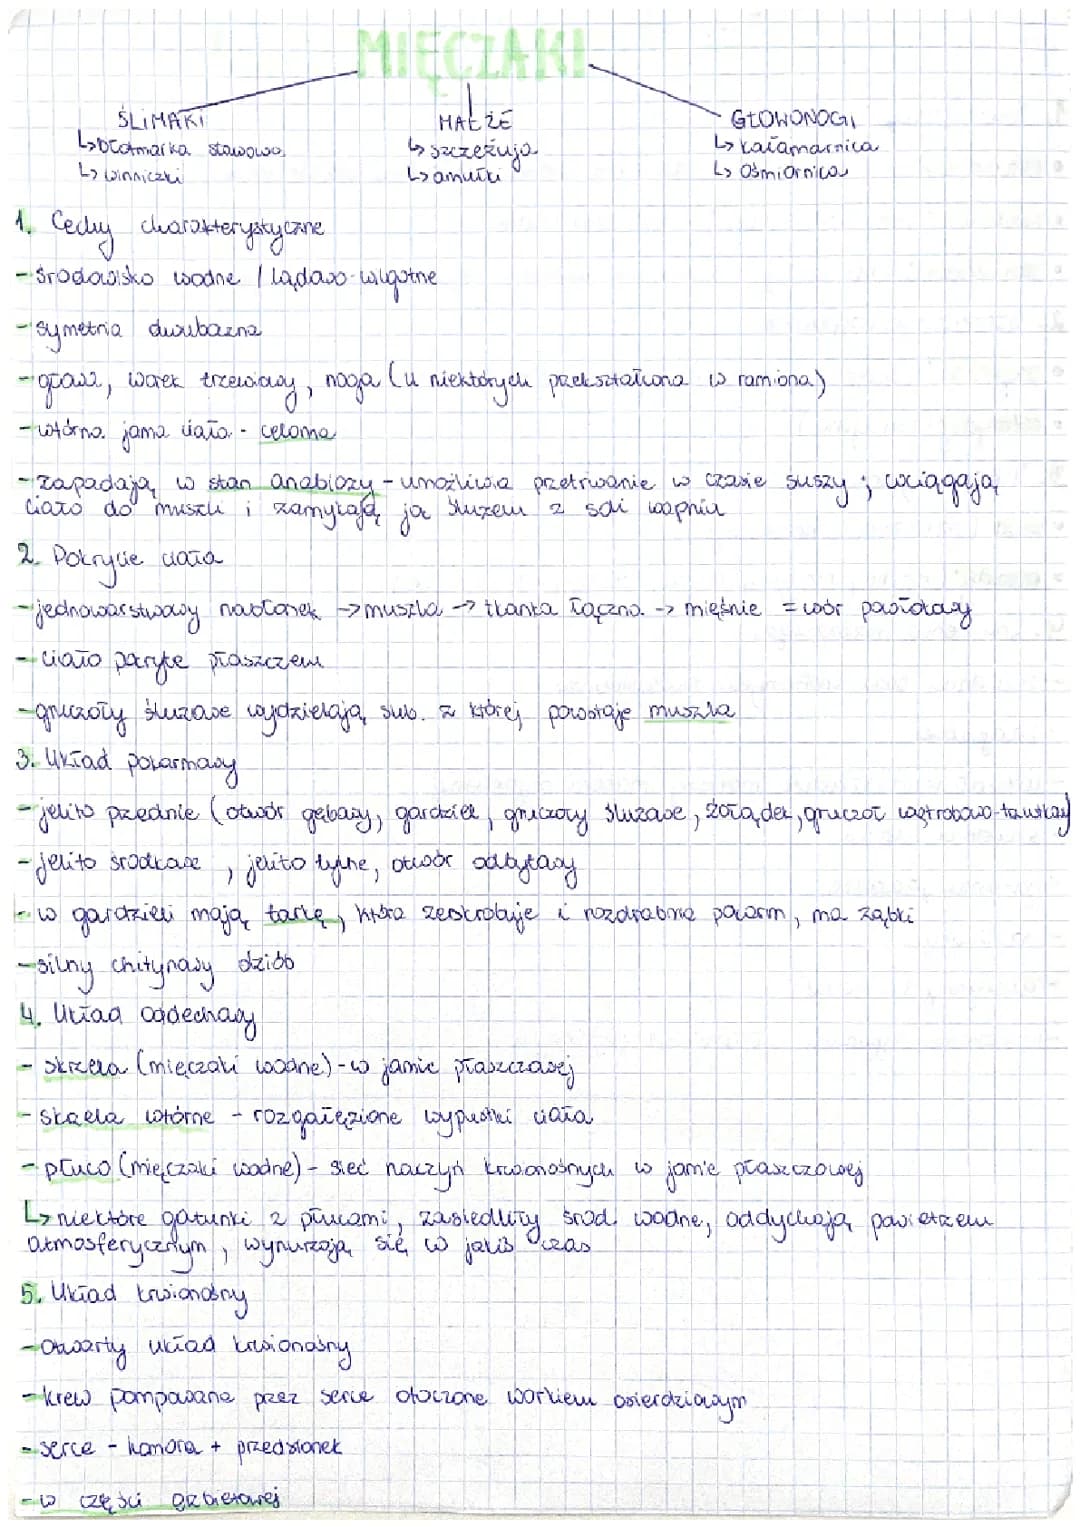 MIĘCZAKI
ŚLIMAKI
MAŁŻE
GŁOWONOGI
↳błotniarka stawowa
↳szczeżuja
↳kałamarnica
↳winniczki
↳omułki
↳ośmiornica
1. Cechy charakterystyczne
-środowisko wodne / lądowo-wilgotne
-symetria dwuboczna
-głowa, worek trzewiowy, noga (u niektórych przekształcona w ramiona)
-wtórna jama ciała - celoma
-zapadają w stan anabiozy - umożliwia przetrwanie w czasie suszy; wciągają
ciało do muszli i zamykają ją śluzem z soli wapnia
2. Pokrycie ciała
-jednowarstwowy nabłonek → muszla → tkanka łączna → mięśnie = wór powłokowy
-ciało pokryte płaszczem
-gruczoły śluzowe wydzielają sub. z której powstaje muszla
3. Układ pokarmowy
-jelito przednie (otwór gębowy, gardziel, gruczoły śluzowe, żołądek, gruczoł wątrobowo-trzustkowy
-jelito środkowe, jelito tylne, otwór odbytowy
-w gardzieli mają tarkę, która zeskrobuje i rozdrabnia pokarm, ma ząbki
-silny chitynowy dziób
4. Układ oddechowy
- skrzela (mięczaki wodne) - w jamie płaszczowej
- skrzela wtórne - rozgałęzione wypustki ciała
- płuco (mięczaki wodne) - sieć naczyń krwionośnych w jamie płaszczowej
↳niektóre gatunki z płucami, zasiedliły środ. wodne, oddychają powietrzem
atmosferycznym, wynurzają się co jakiś czas
5. Układ krwionośny
-otwarty układ krwionośny
-krew pompowana przez serce otoczone workiem osierdziowym
-serce - komora + przedsionek
-w części grzbietowej